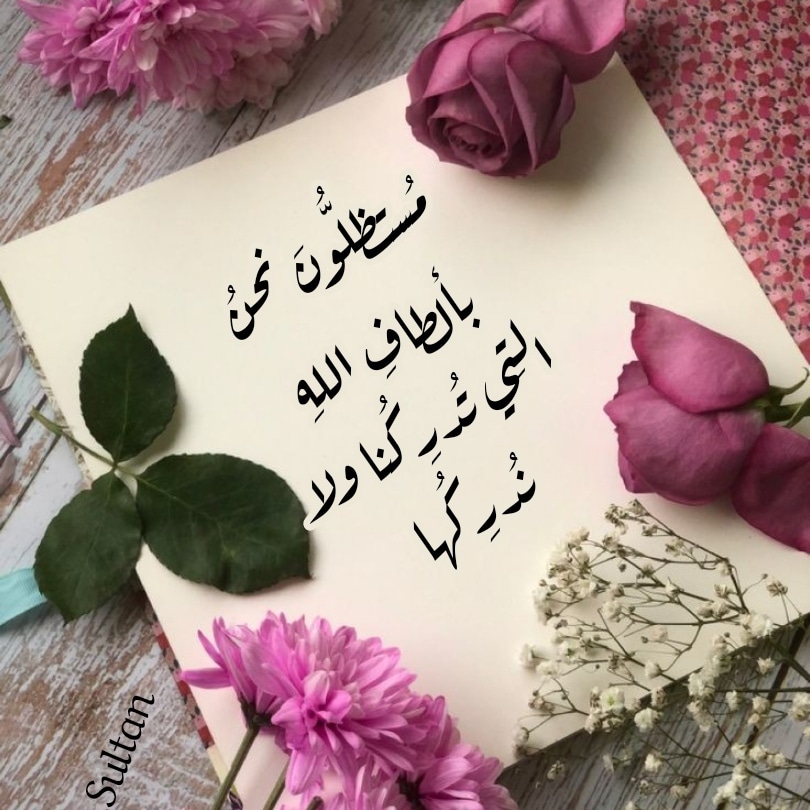 مُستظلُّونَ نحنُ
بألطافِ اللهِ
التِي تُدرِكُنا ولا
نُدرِكُها
Sultan